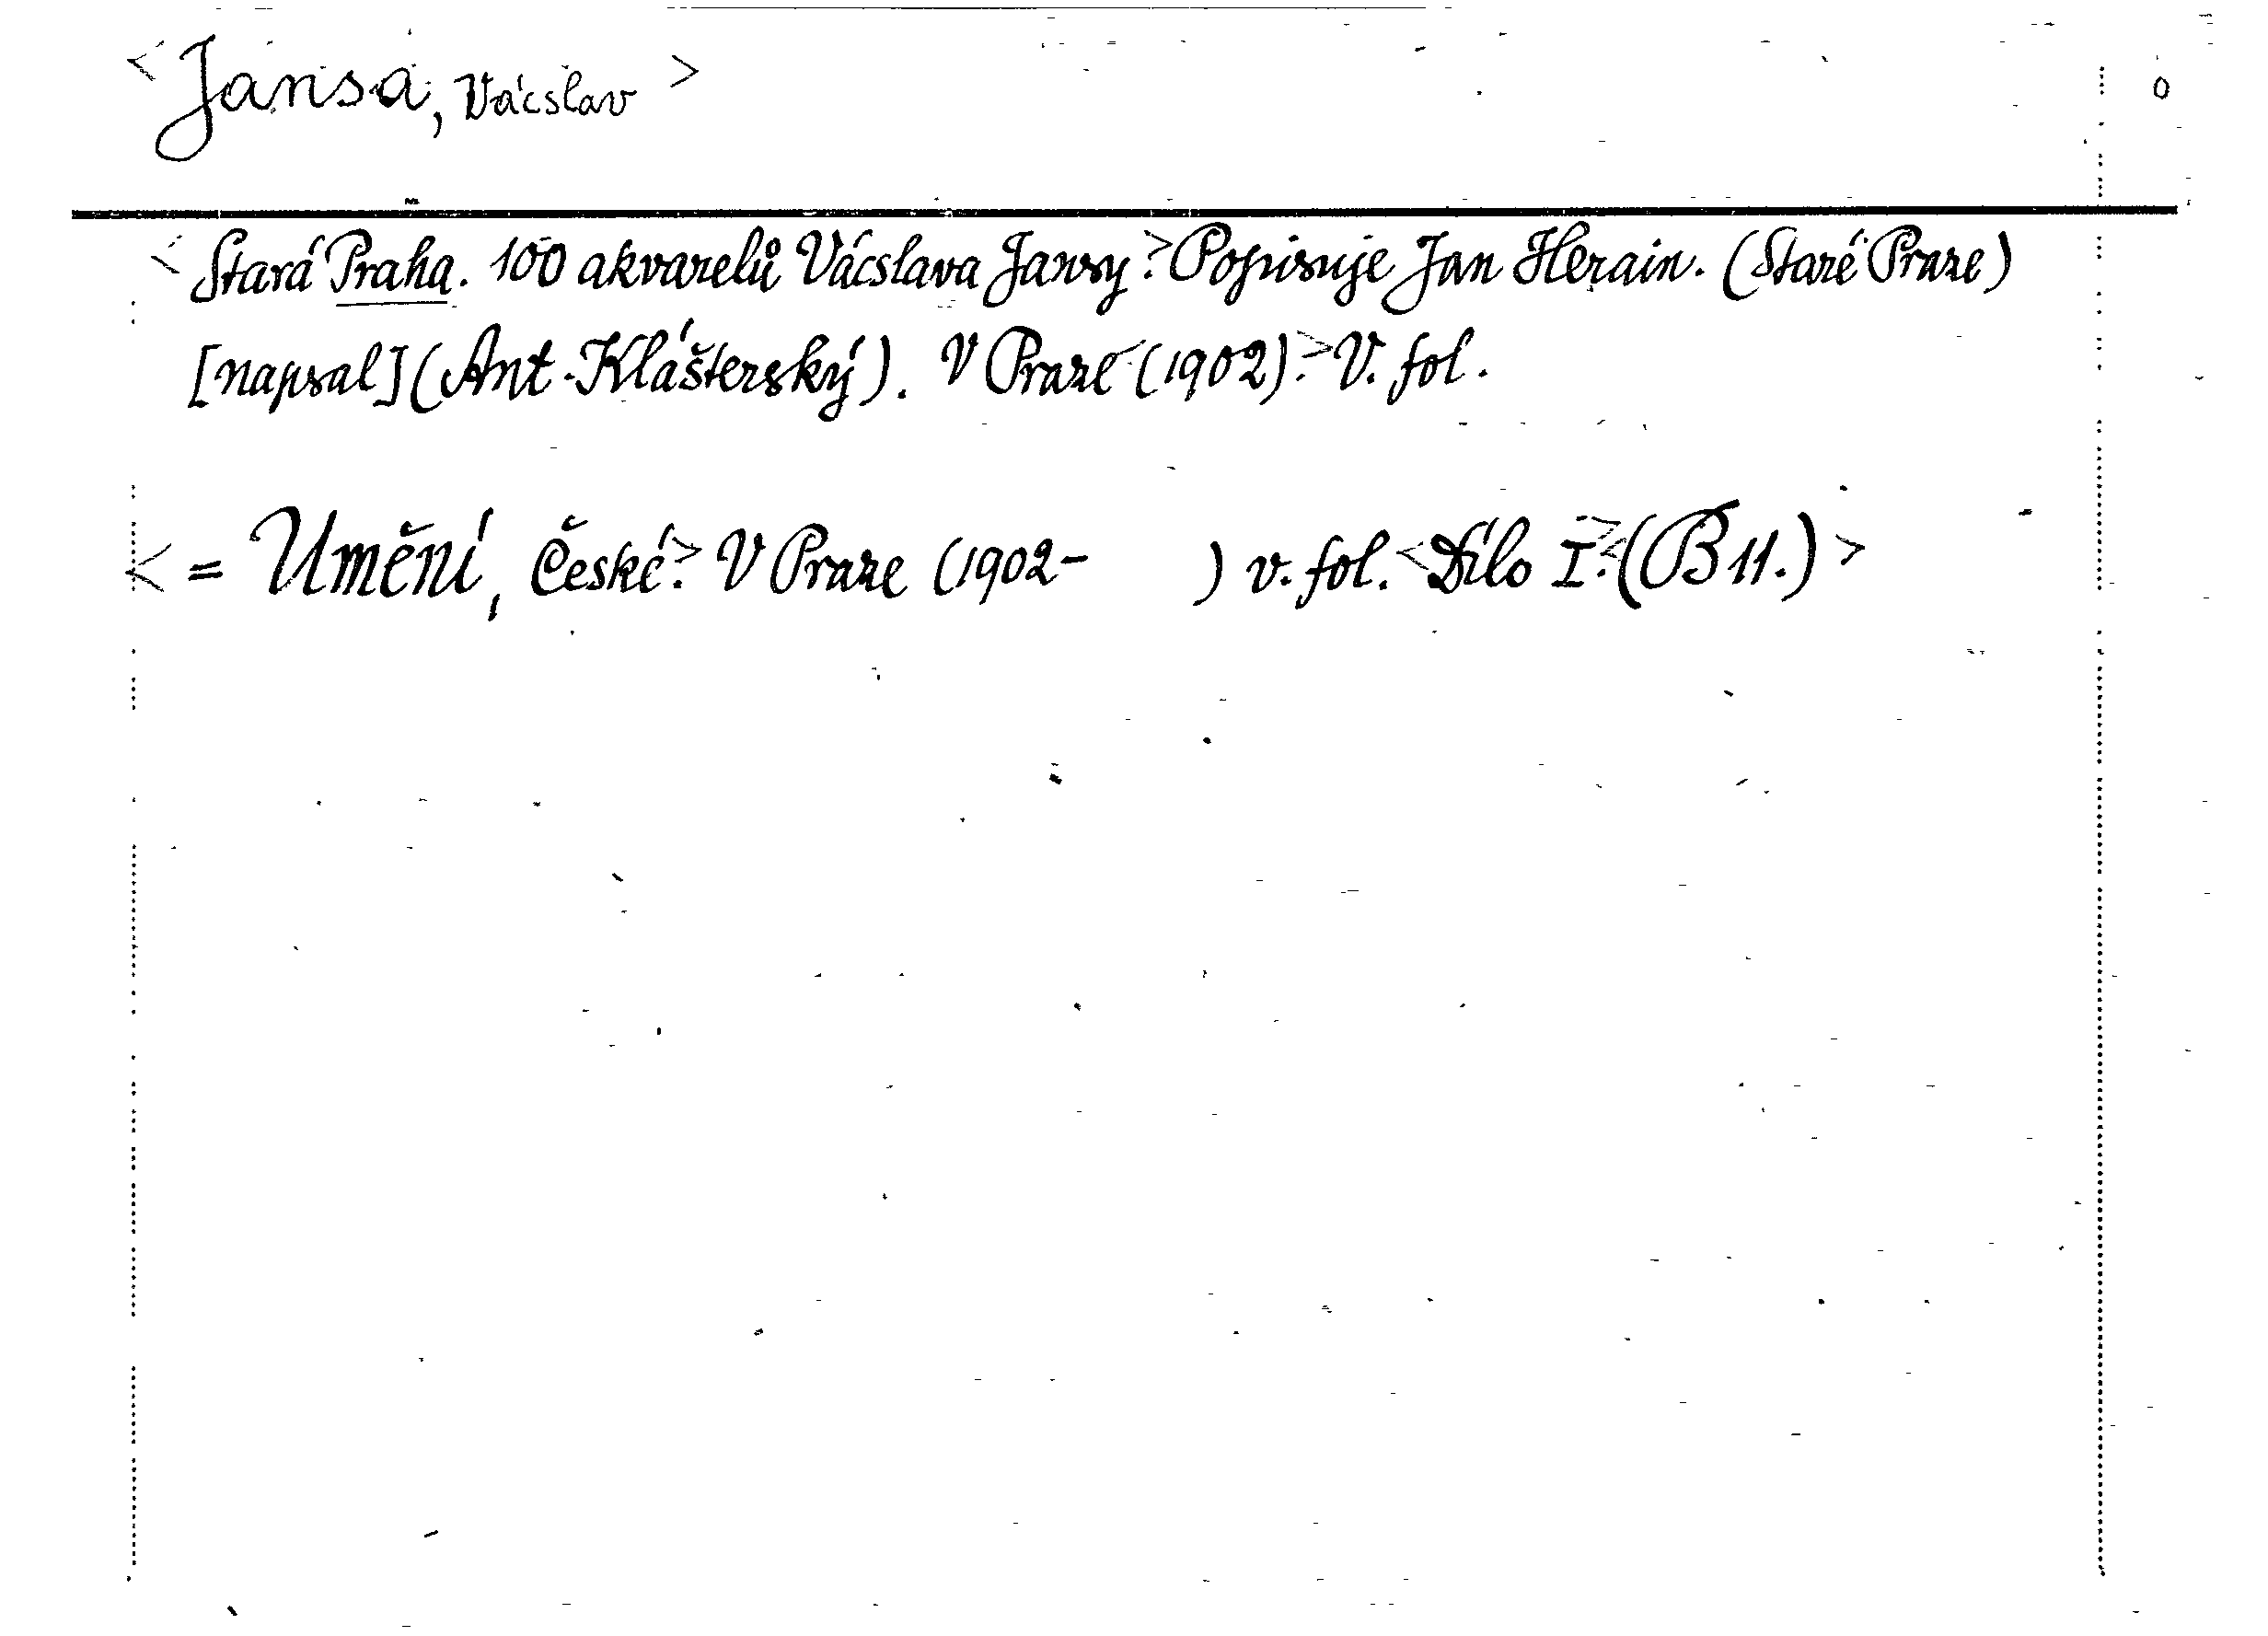 <Jansa, Vácslav> o
<Stará Praha. 100 akvarelů Vácslava Jansy.> Popisuje Jan Herain. (Staré Praze)
[napsal] (Ant. Klášterský). V Praze (1902).> V. fol.
< = Umění, České.> V Praze (1902- ) v. fol. <Dílo I.> <(B 11.)>